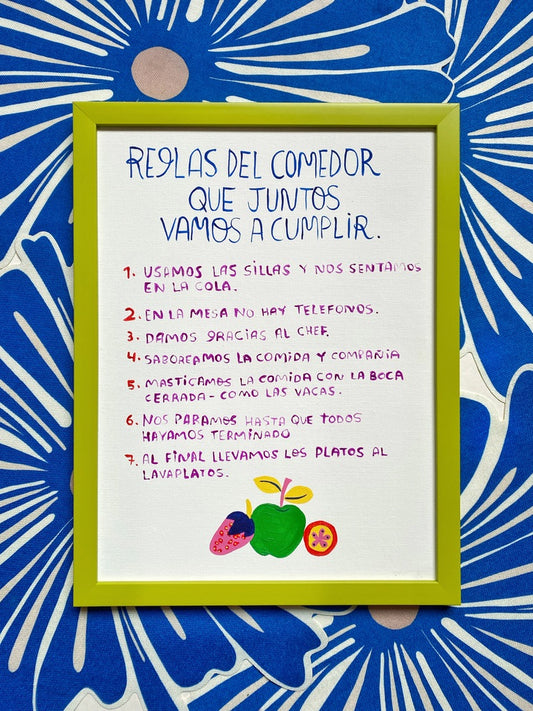 REGLAS DEL COMEDOR
QUE JUNTOS
VAMOS A CUMPLIR.
1. USAMOS LAS SILLAS Y NOS SENTAMOS
EN LA COLA.
2. EN LA MESA NO HAY TELEFONOS.
3. DAMOS GRACIAS AL CHEF.
4. SABOREAMOS LA COMIDA Y COMPAÑIA
5. MASTICAMOS LA COMIDA CON LA BOCA
CERRADA - COMO LAS VACAS.
6. NOS PARAMOS HASTA QUE TODOS
HAYAMOS TERMINADO
7. AL FINAL LLEVAMOS LOS PLATOS AL
LAVAPLATOS.